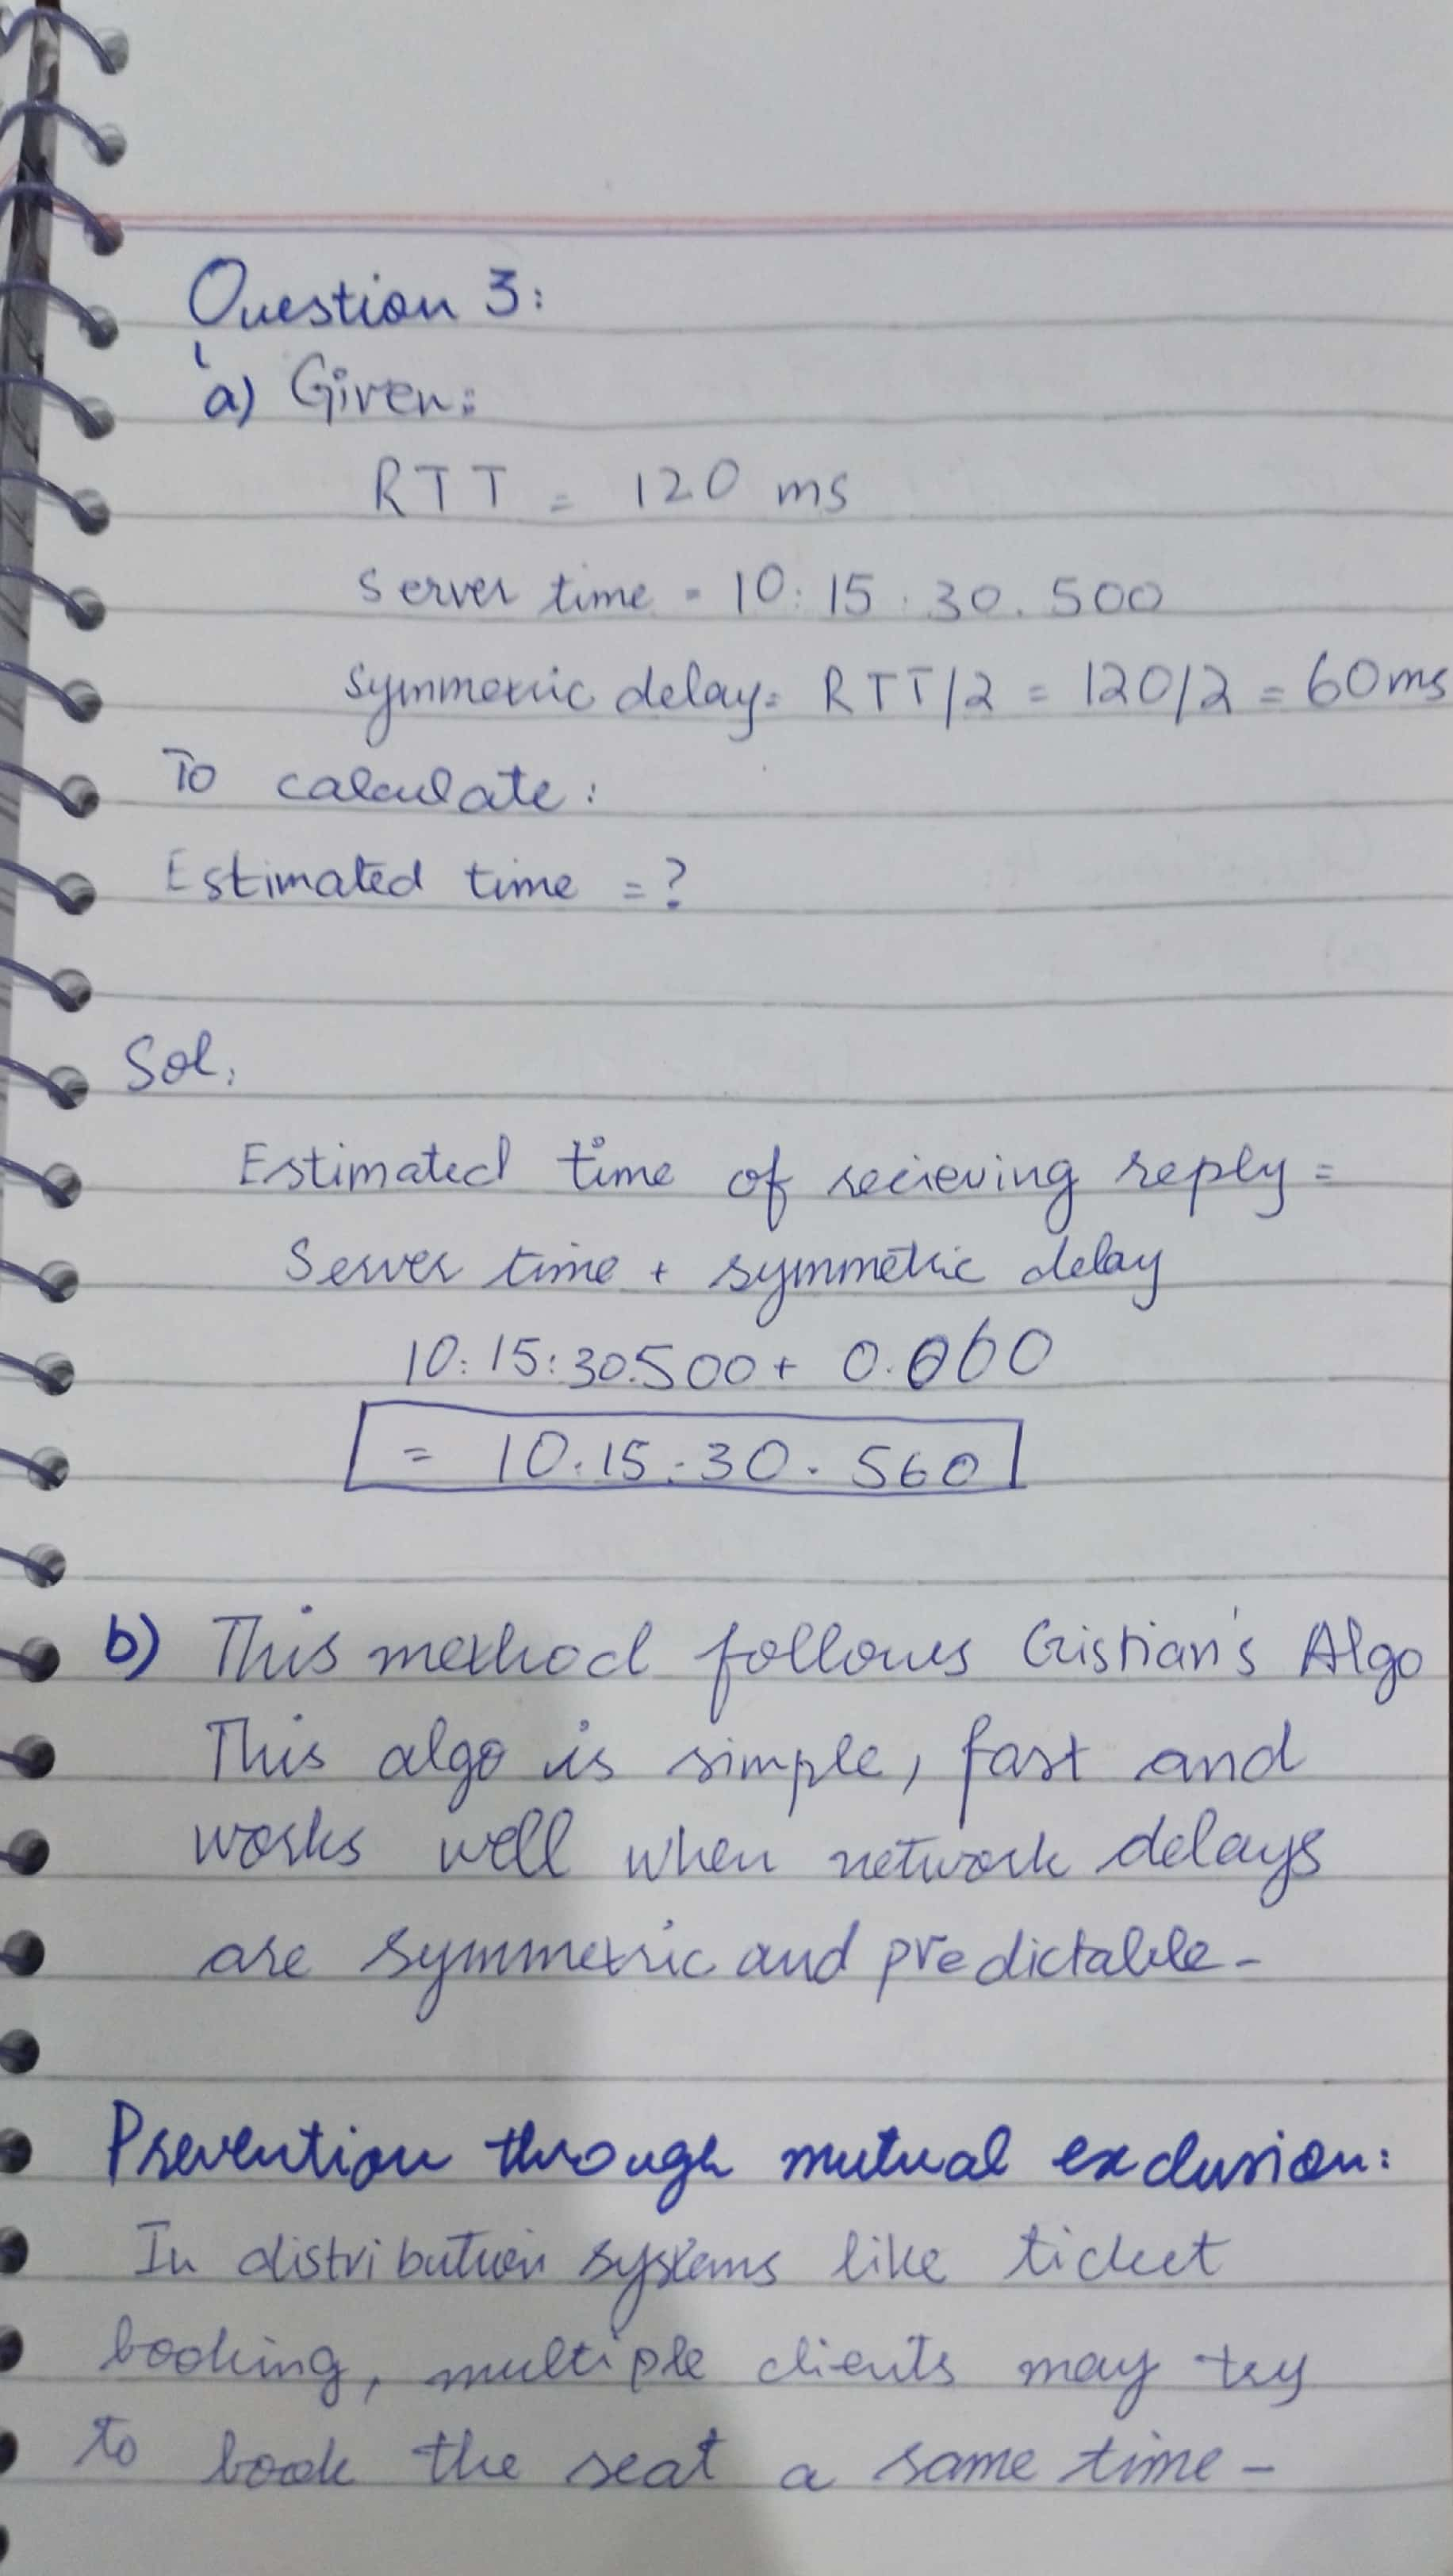 Question 3:
a) Given:
RTT = 120 ms
Server time = 10:15:30.500
Symmetric delay = RTT/2 = 120/2 = 60ms
To calculate:
Estimated time = ?
Sol:
Estimated time of recieving reply =
Server time + symmetric delay
10:15:30.500 + 0.060
= 10:15:30.560
b) This method follows Cristian's Algo
This algo is simple, fast and
works well when network delays
are symmetric and predictable-
Prevention through mutual exclusion:
In distribution systems like ticket
booking, multiple clients may try
to book the seat a same time-